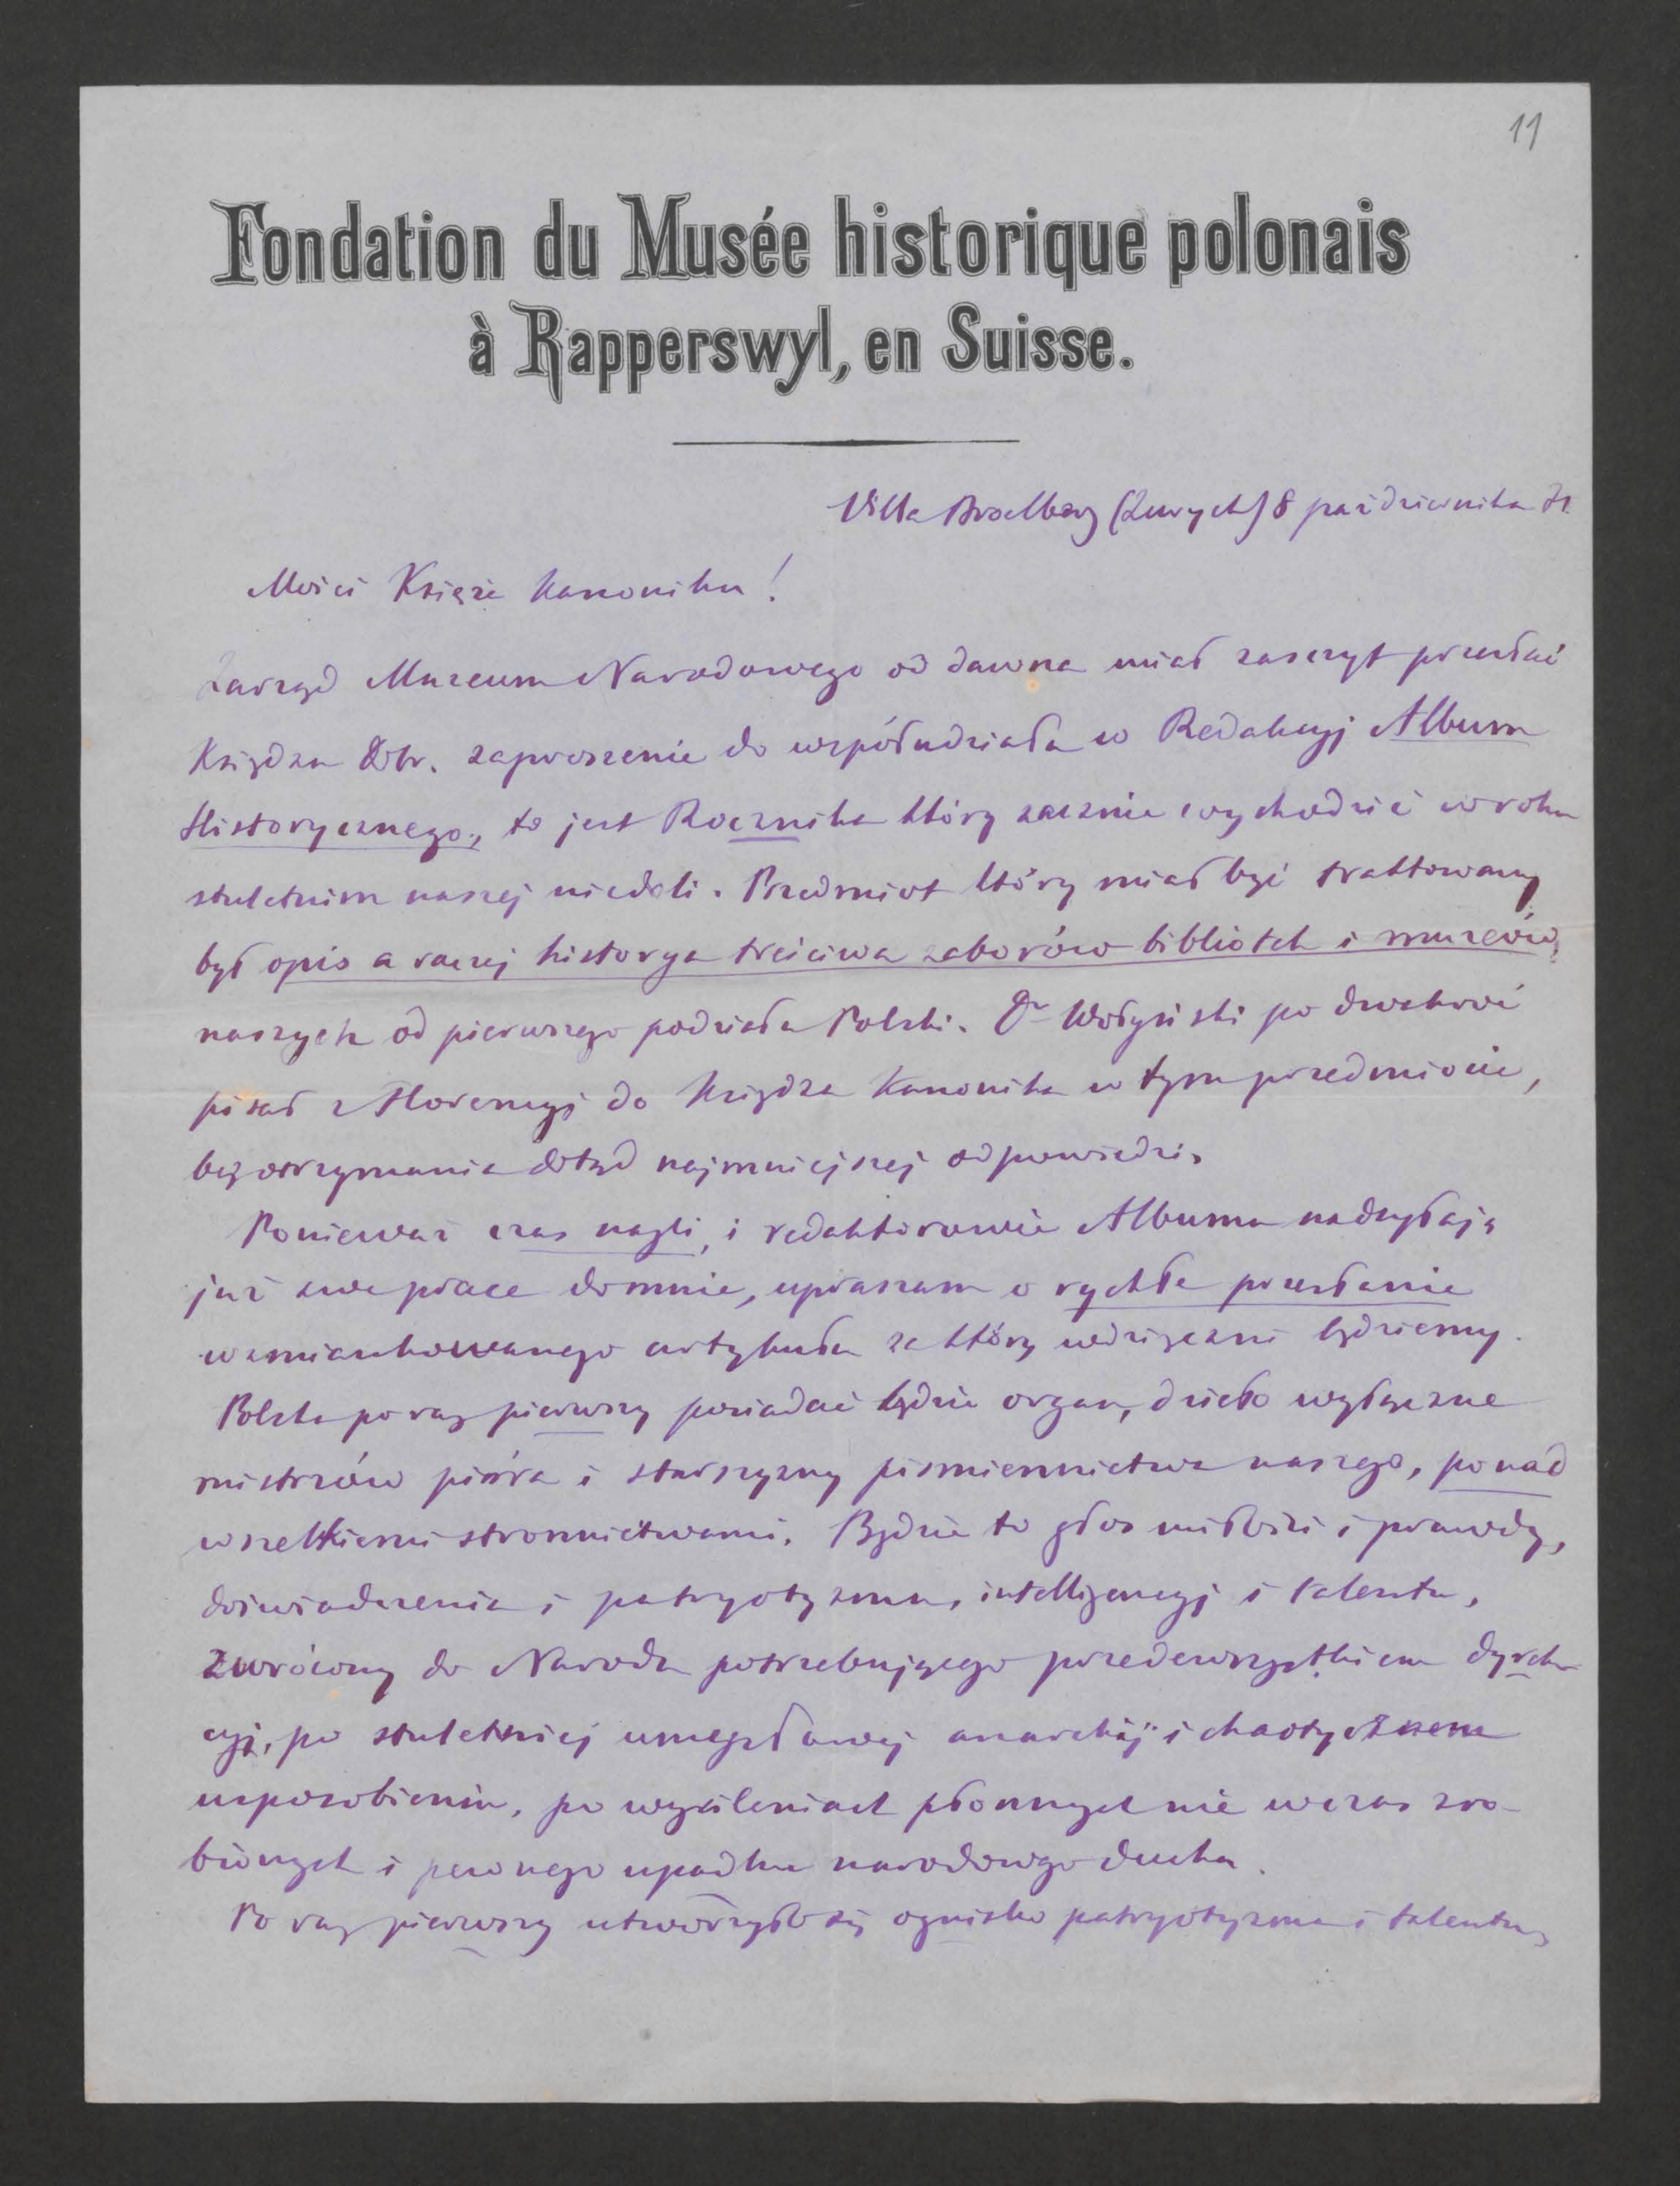 11
Fondation du Musée historique polonais
à Rapperswyl, en Suisse.
Villa Broelberg (Zurych) 8 października 71.
Mości Księże Kanoniku!
Zarząd Muzeum Narodowego od dawna miał zaszczyt przesłać
Księdzu Dobr. zaproszenie do współudziału w Redakcyj Album
Historycznego, to jest Rocznika który zacznie wychodzić w roku
stuletnim naszej niedoli. Przedmiot który miał być traktowany
był opis a raczej historya treściwa zaborów bibliotek i muzeów
naszych od pierwszego podziału Polski. Dr Wołyński po dwakroć
pisał z Florencyj do Księdza Kanonika w tym przedmiocie,
bez otrzymania dotąd najmniejszej odpowiedzi.
Ponieważ czas nagli, i redaktorowie Albumu nadsyłają
już swe prace do mnie, upraszam o rychłe przesłanie
wzmiankowanego artykułu za który wdzięczni będziemy.
Polska po raz pierwszy posiadać będzie organ, dzieło wyłączne
mistrzów pióra i starszyzny pismiennictwa naszego, ponad
wszelkiemi stronnictwami. Będzie to głos miłości i prawdy,
doświadczenia i patryotyzmu, intelligencyj i talentu,
zwrócony do Narodu potrzebującego przedewszystkiem dyrek-
cyj, po stuletniej umysłowej anarchij i chaotycznem
usposobieniu, po wysileniach płonnych nie wczas zro-
bionych i pewnego upadku narodowego ducha.
Po raz pierwszy utworzyło się ognisko patryotyzmu i talentu,